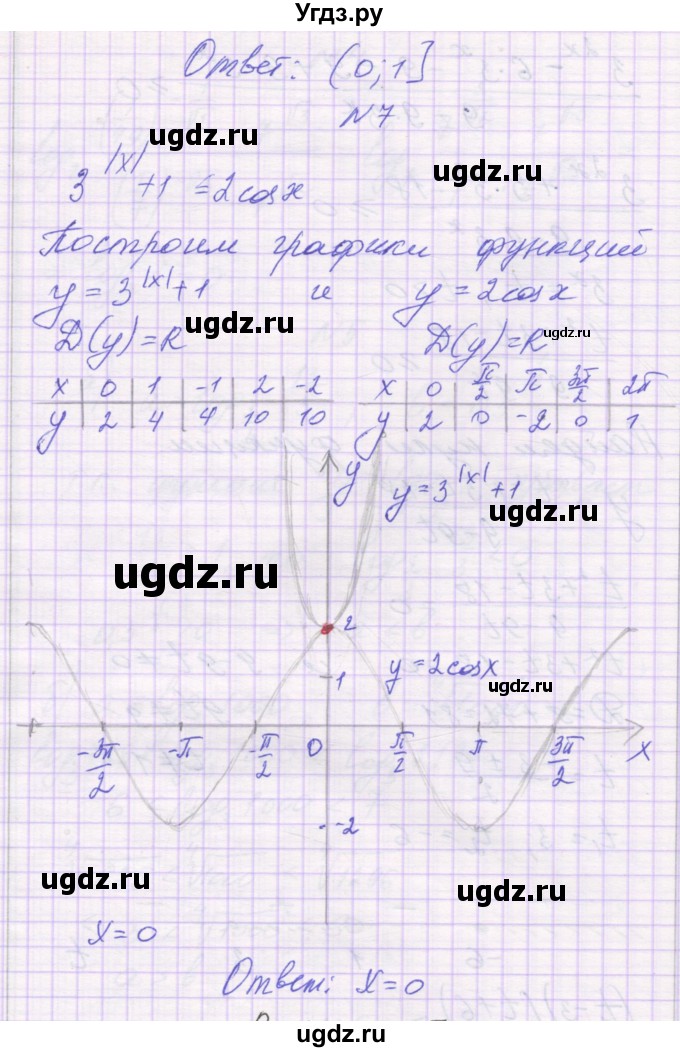 Угдз.ру
Ответ: (0;1]
N7
ugdz.ru ugdz.ru
3^|x|+1 = 2cosx
Построим графики функций
y=3^|x|+1 и y=2cosx
ugdz.ru ugdz.ru
D(y)=R D(y)=R
x | 0 | 1 | -1 | 2 | -2
y | 2 | 4 | 4 | 10 | 10
x | 0 | π/2 | π | 3π/2 | 2π
y | 2 | 0 | -2 | 0 | 1
y
y=3^|x|+1
ugdz.ru
ugdz.ru
2
1
y=2cosx
ugdz.ru
-3π/2 -π -π/2 0 π/2 π 3π/2 x
-2
ugdz.ru ugdz.ru
x=0
Ответ: x=0
ugdz.ru